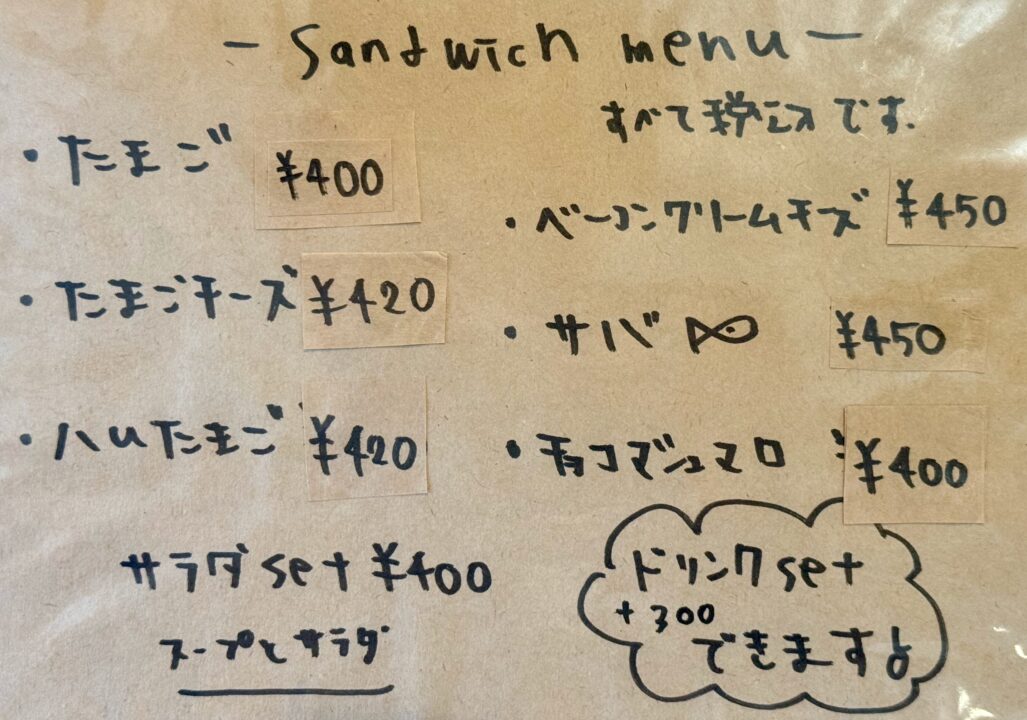 - Sandwich menu -
すべて税込です.
・たまご ¥400
・たまごチーズ ¥420
・ハムたまご ¥420
・ベーコンクリームチーズ ¥450
・サバ ¥450
・チョコマシュマロ ¥400
サラダset ¥400
スープとサラダ
ドリンクset
+300
できます♪